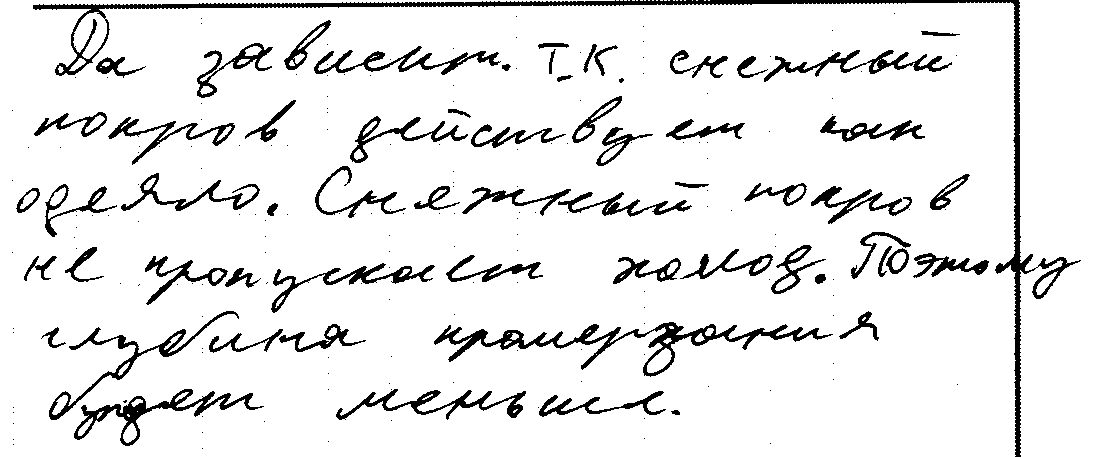 Да зависит. Т.К. снежный
покров действует как
одеяло. Снежный покров
не пропускает холод. Поэтому
глубина промерзания
будет меньше.